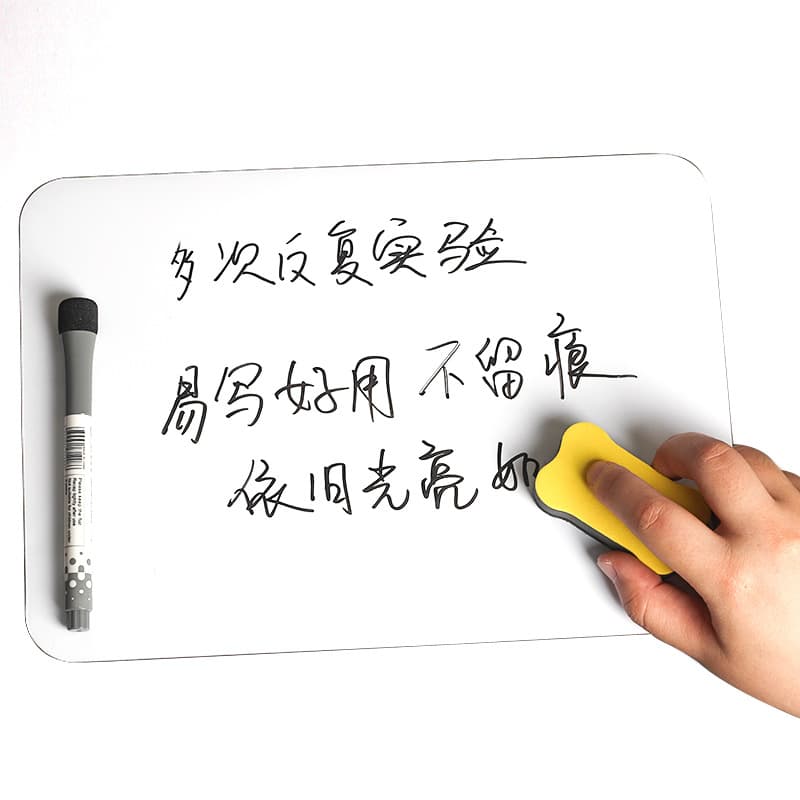 多次反复实验
易写好用 不留痕
依旧光亮如